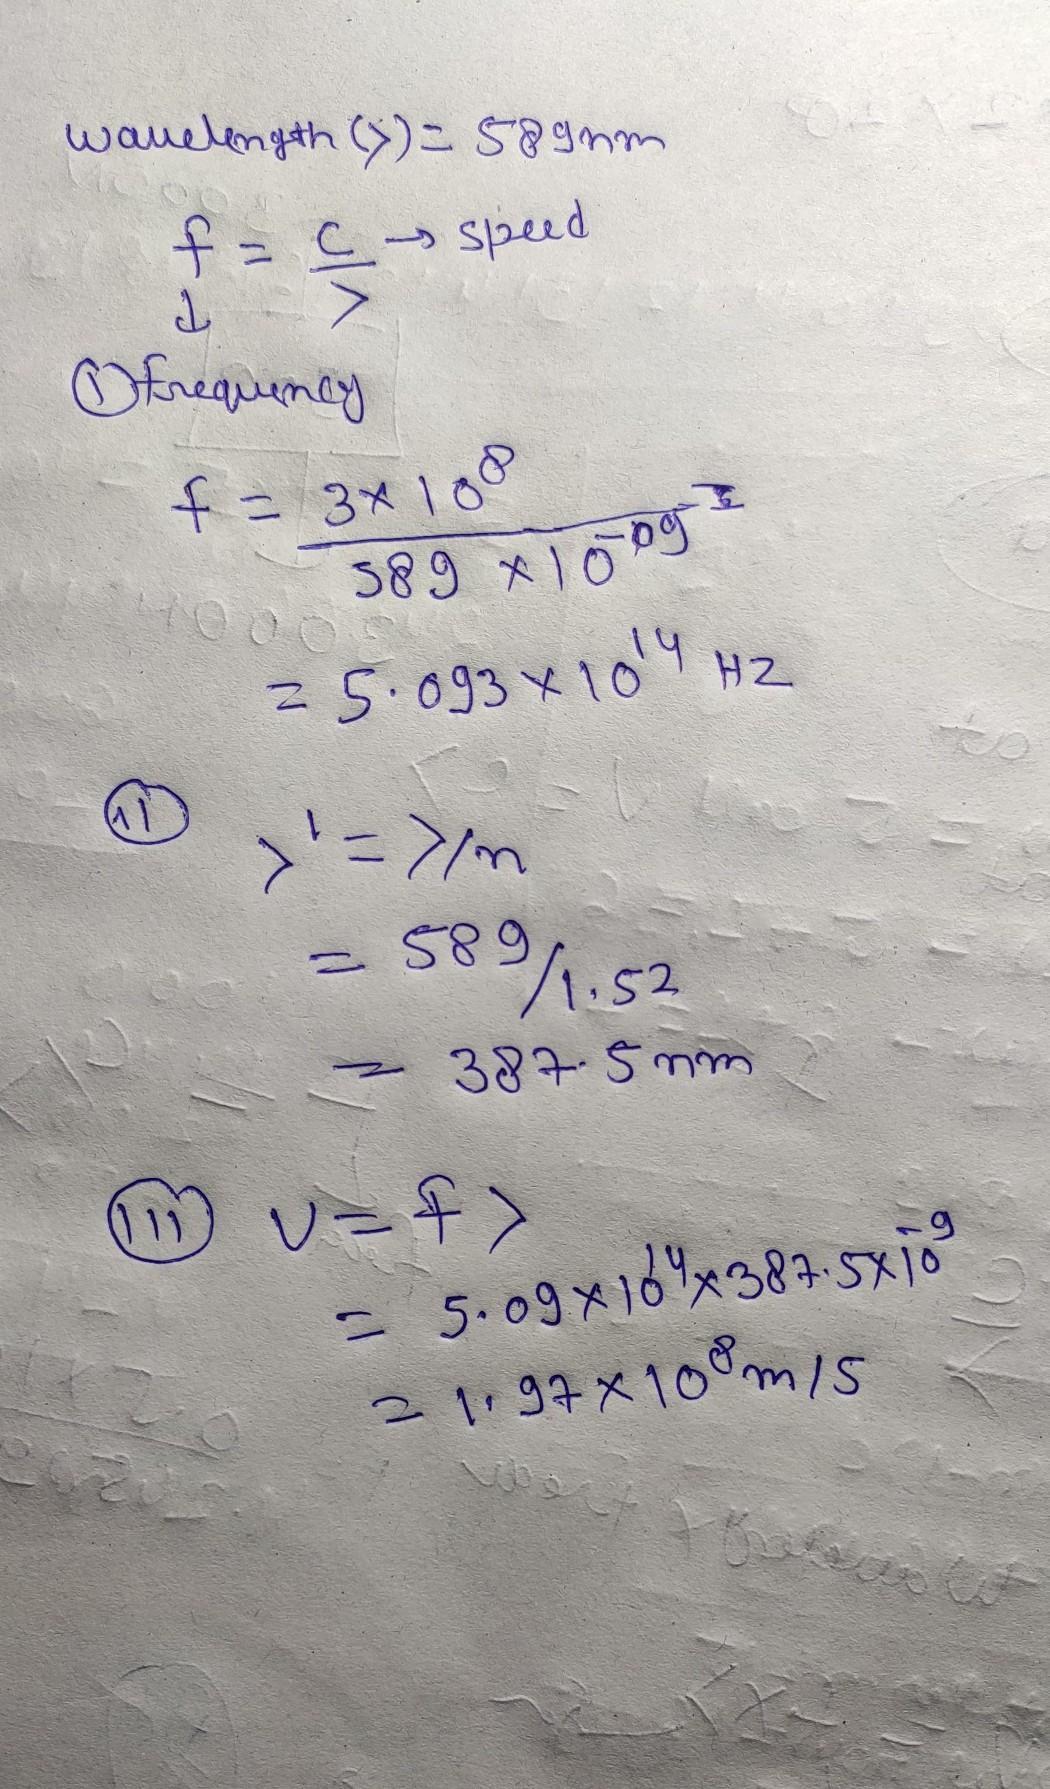 wavelength (>) = 589nm
f = c/> → speed
↓
(i) frequency
f = 3×10^8 / 589 ×10^-09
= 5.093×10^14 HZ
(ii)
>' = >/n
= 589/1.52
= 387.5nm
(iii) v = f>
= 5.09×10^14×387.5×10^-9
= 1.97×10^8 m/s